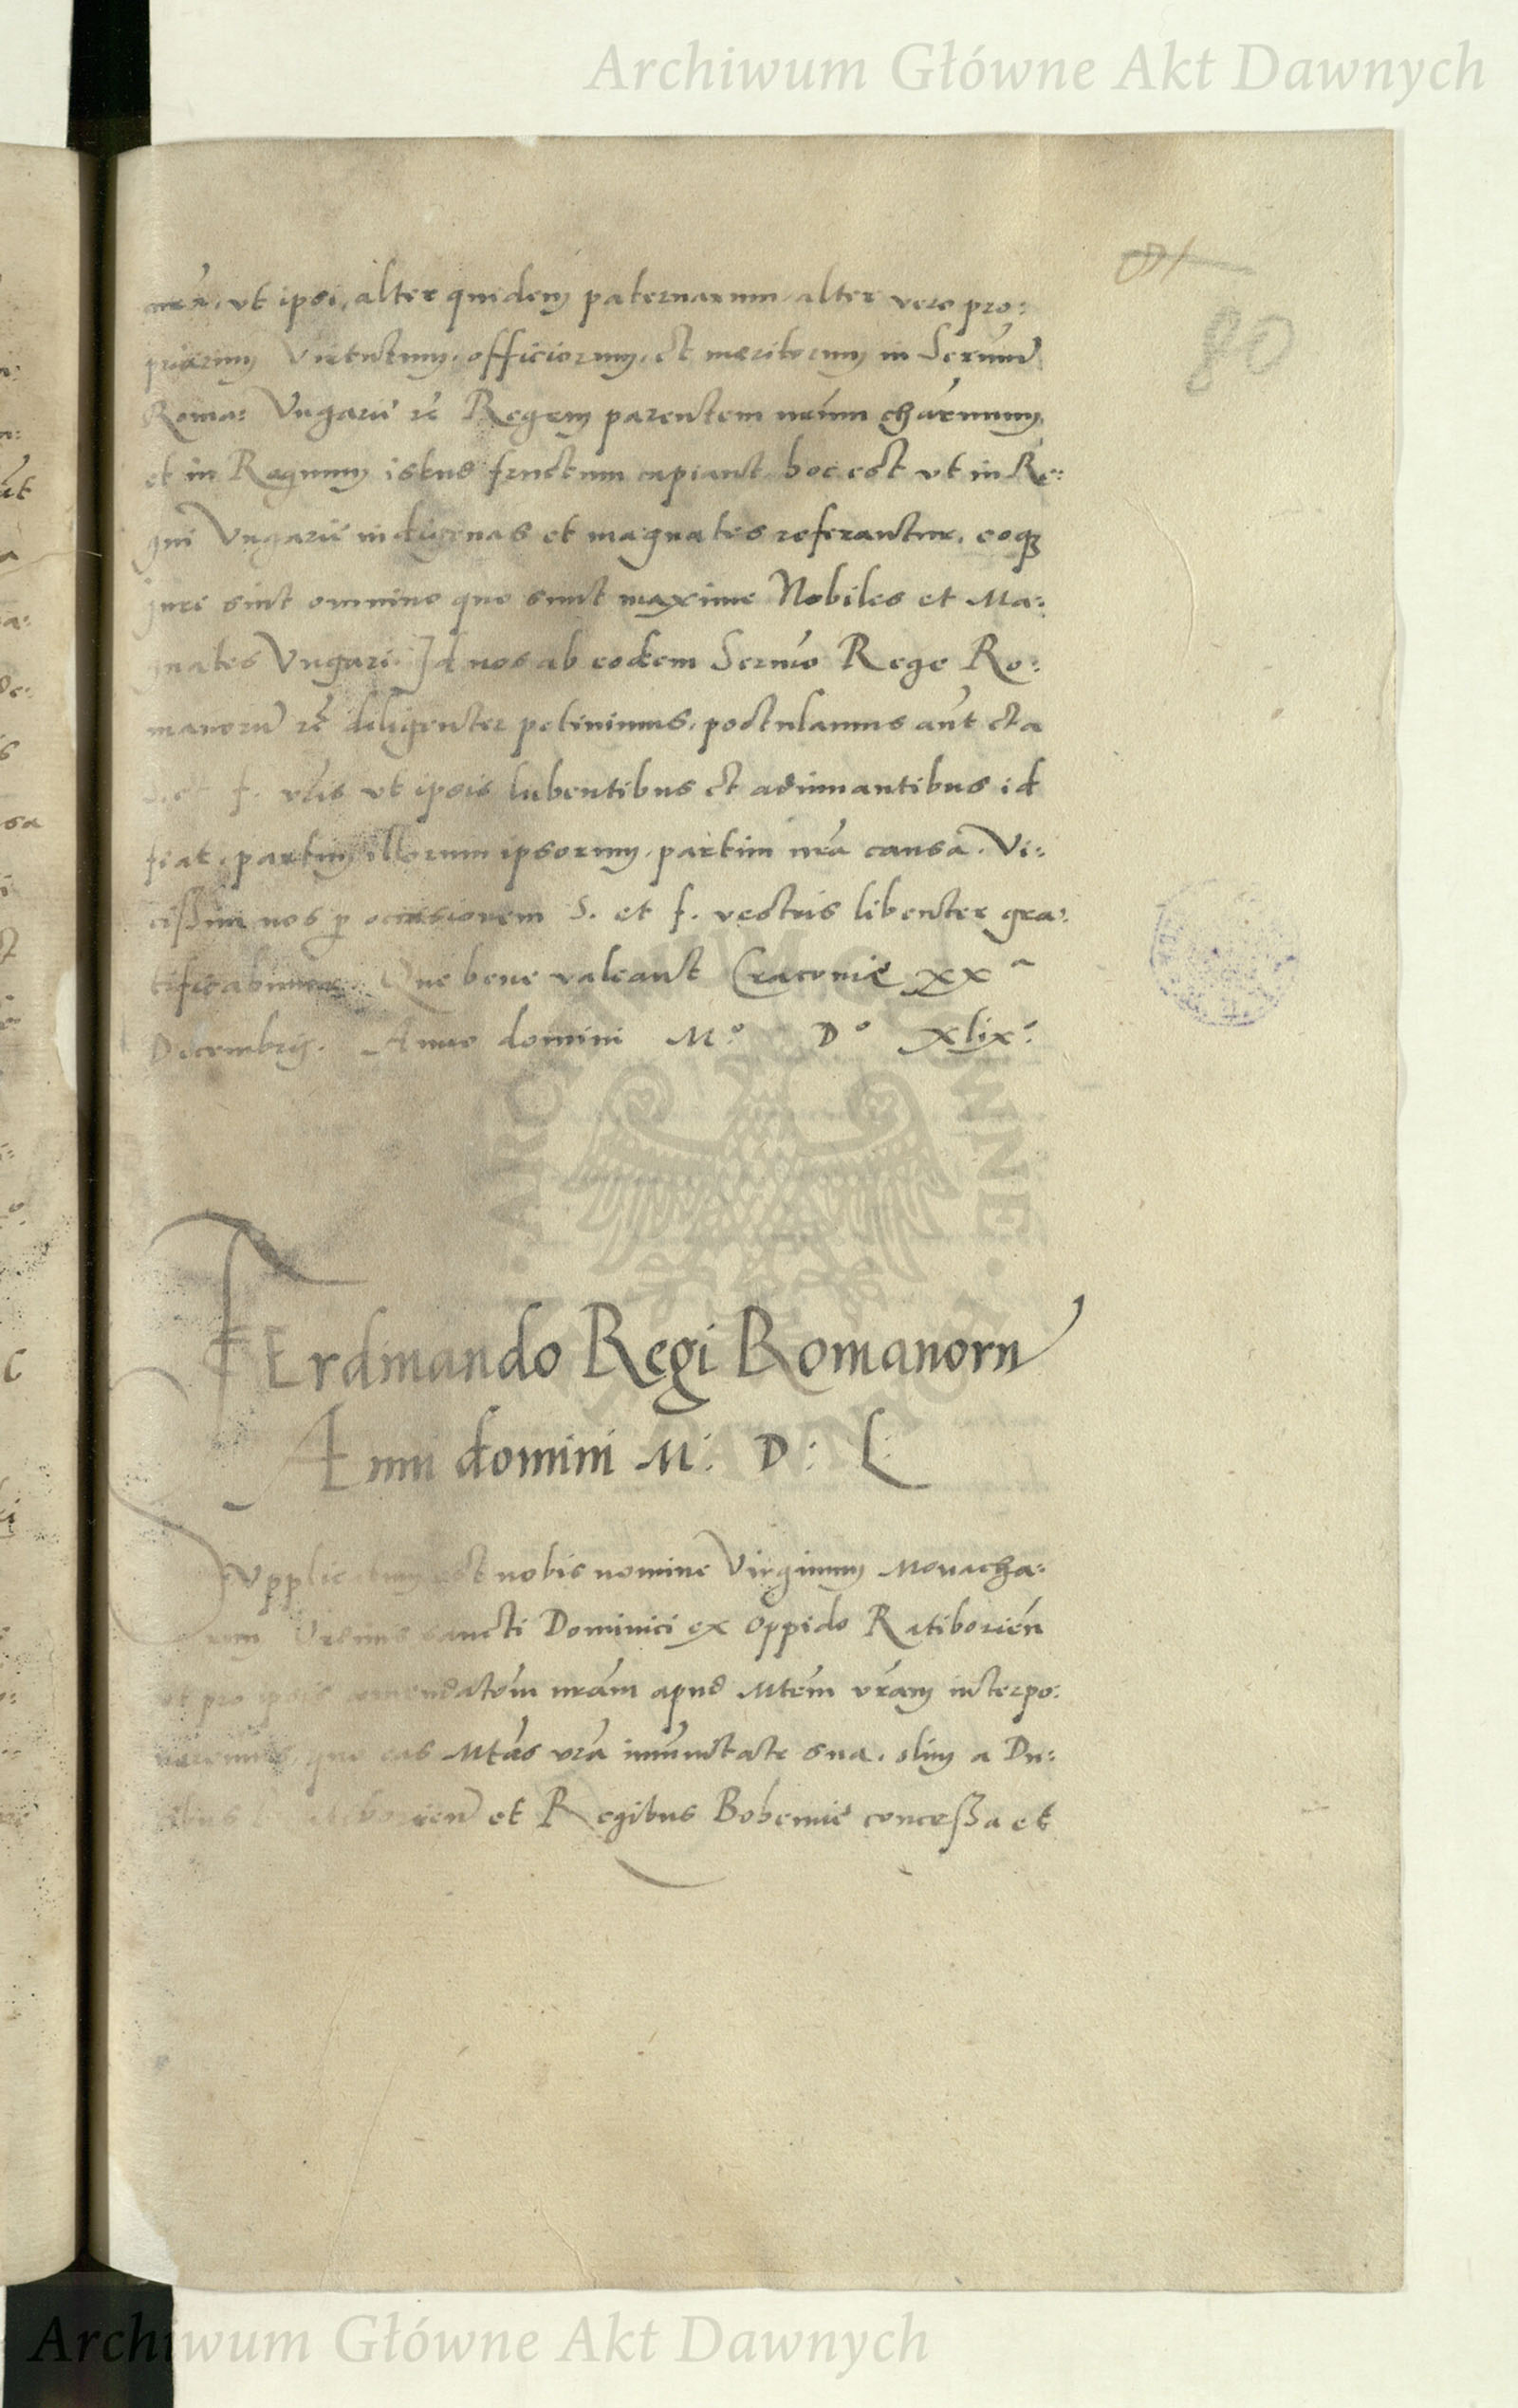 Archiwum Główne Akt Dawnych
81
80
ut ipsi, alter quidem paternarum alter vero pro:
priarum virtutum, officiorum, et meritorum in Sermũ
Roma: Vngarie rc̃ Regem parentem nrũm charmum,
et in Regnum istud fructum capiant hoc est vt in Re:
gni Vngarie indigenas et magnates referantur, eoqȝ
jure sint omnino quo sunt maxime Nobiles et Ma:
gnates Vngari. Id nos ab eodem Sermo Rege Ro:
manorũ rc̃ diligenter petivimus, postulamus aũt eta
S. et f. vr̃is vt ipsis lubentibus et adiuuantibus id
fiat, partim illorum ipsorum, partim nr̃a causa. Vi:
cißim nos p occasionem S. et f. vestris libenter gra:
tificabimur. Que bene valeant Cracovie XX a
Decembris. Anno domini Mº Dº xlixº.
FErdinando Regi Romanorũ
Anni domini M: D: L
SVpplicatum est nobis nomine Virginum Monacha:
rum Ordinis sancti Dominici ex Oppido Ratiborieñ
vt pro ipsis comendatõm nrãm apud Mtem vrãm interpo:
neremus, quo eas Mtas vrã imũnitate sua, olim a Du:
cibus Ratiborieñ et Regibus Bohemie conceßa et
ARCHIWUM GŁÓWNE AKT DAWNYCH
Archiwum Główne Akt Dawnych